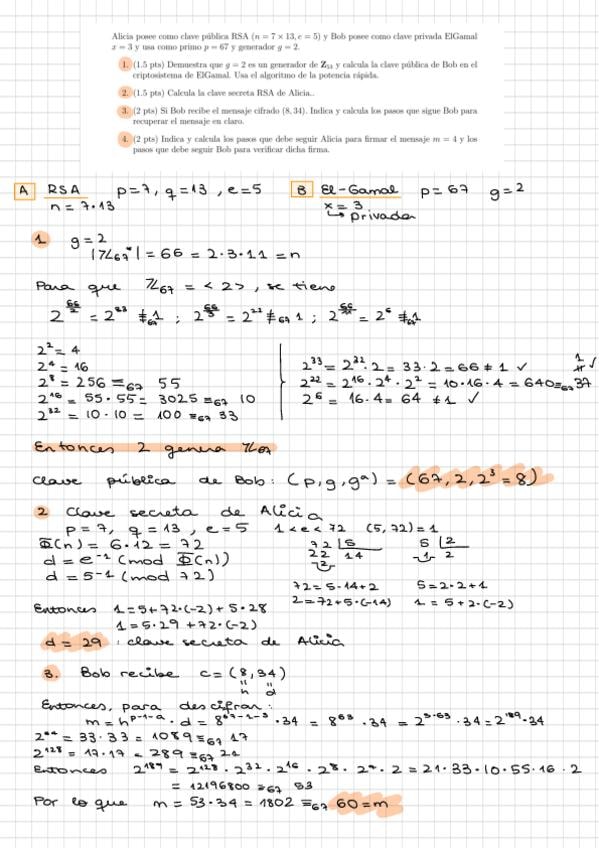 Alicia posee como clave pública RSA (n = 7 × 13, e = 5) y Bob posee como clave privada ElGamal
x = 3 y usa como primo p = 67 y generador g = 2.
1. (1.5 pts) Demuestra que g = 2 es un generador de Z53 y calcula la clave pública de Bob en el
criptosistema de ElGamal. Usa el algoritmo de la potencia rápida.
2. (1.5 pts) Calcula la clave secreta RSA de Alicia..
3. (2 pts) Si Bob recibe el mensaje cifrado (8, 34). Indica y calcula los pasos que sigue Bob para
recuperar el mensaje en claro.
4. (2 pts) Indica y calcula los pasos que debe seguir Alicia para firmar el mensaje m = 4 y los
pasos que debe seguir Bob para verificar dicha firma.
A RSA p=7, q=13, e=5 B El-Gamal p=67 g=2
n=7·13 x=3
↳ privada
1 g=2
|ℤ67*| = 66 = 2·3·11 = n
Para que ℤ67 = <2>, se tiene
2^(66/2) = 2^33 ≢67 1 ; 2^(66/3) = 2^22 ≢67 1 ; 2^(66/11) = 2^6 ≢67 1
2² = 4
2⁴ = 16
2⁸ = 256 ≡67 55
2^16 = 55·55 = 3025 ≡67 10
2^32 = 10·10 = 100 ≡67 33
2^33 = 2^32·2 = 33·2 = 66 ≠ 1 ✓
2^22 = 2^16·2^4·2^2 = 10·16·4 = 640 ≡67 37 ≠ 1 ✓
2^6 = 16·4 = 64 ≠ 1 ✓
Entonces 2 genera ℤ67
Clave pública de Bob: (p, g, g^a) = (67, 2, 2³ = 8)
2 Clave secreta de Alicia
p=7, q=13, e=5 1<e<72 (5,72)=1
Φ(n) = 6·12 = 72
d = e⁻¹ (mod Φ(n))
d = 5⁻¹ (mod 72)
72 5 5 2
22 14 1 2
2
72 = 5·14+2 5 = 2·2+1
2 = 72+5·(-14) 1 = 5+2·(-2)
Entonces 1 = 5+72·(-2)+5·28
1 = 5·29+72·(-2)
d = 29 : clave secreta de Alicia
3. Bob recibe c = (8, 34)
" "
h d
Entonces, para descifrar:
m = h^(p-1-a)·d = 8^(67-1-3)·34 = 8^63·34 = 2^(3·63)·34 = 2^189·34
2^64 = 33·33 = 1089 ≡67 17
2^128 = 17·17 = 289 ≡67 21
Entonces 2^189 = 2^128·2^32·2^16·2^8·2^4·2 = 21·33·10·55·16·2
= 12196800 ≡67 53
Por lo que m = 53·34 = 1802 ≡67 60 = m